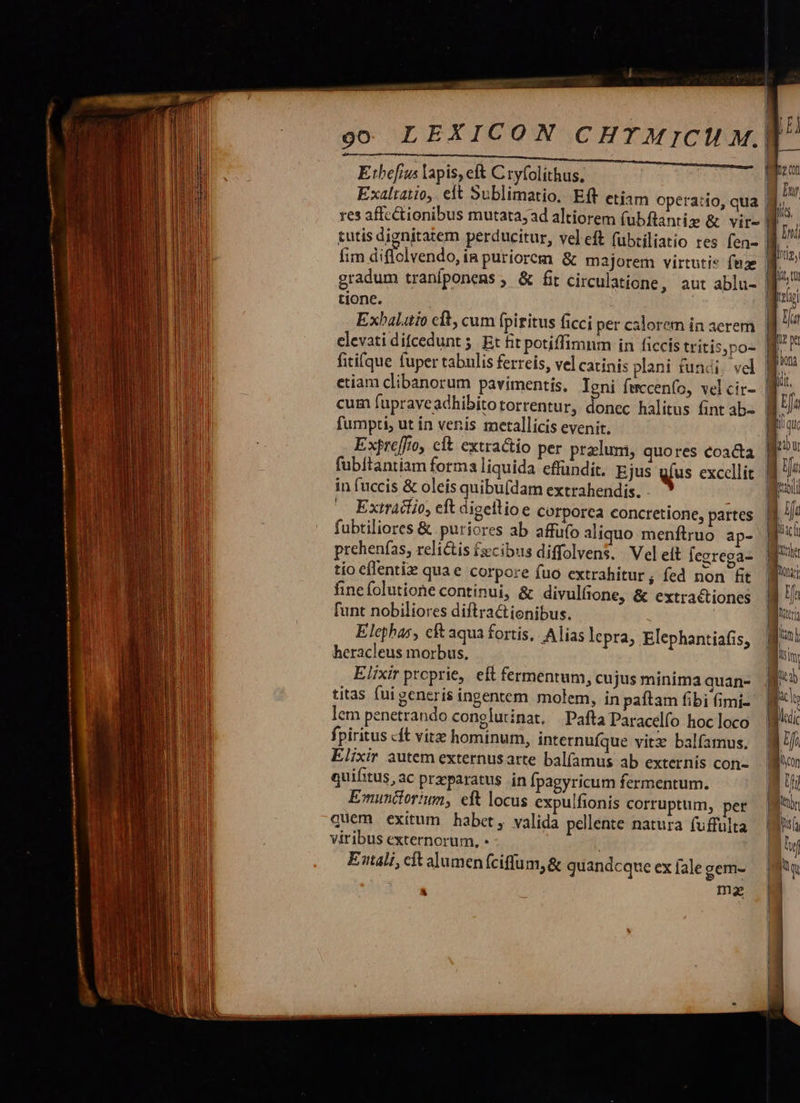 90 LEXICON CHYMICUM.
Etbeſius lapis, eſt Cryſolithus.
Exaltatio, eſt Sublimatio. Eſt etiam operatio, qua
res affectionibus mutata, ad altiorem ſubſtantiæ & vir-
tutis dignitatem perducitur, vel eſt ſubtiliatio res ſen-
ſim diſſolvendo, in puriorem & majorem virtutis ſuæ
gradum tranſponens, & fit circulatione, aut ablu-
tione.
Exhalatio eſt, cum ſpiritus ſicci per calorem in aerem
elevati diſcedunt; Et fit potiſſimum in ſiccis tritis, po-
ſitiſque ſuper tabulis ferreis, vel catinis plani fundi, vel
etiam clibanorum pavimentis. Igni ſuccenſo, vel cir-
cum ſupraveadhibito torrentur, donec halitus ſint ab-
ſumpti, ut in venis metallicis evenit.
Expreſſio, eſt extractio per prælum, quores coacta
ſubſtantiam forma liquida effundit. Ejus uſus excellit
in ſuccis & oleis quibuſdam extrahendis.
Extractio, eſt digeſtio e corporea concretione, partes
ſubtiliores & puriores ab affuſo aliquo menſtruo ap-
prehenſas, relictis fæcibus diſſolvens. Vel eſt ſegrega-
tio eſſentiæ quae corpore ſuo extrahitur, ſed non fit
ſine ſolutione continui, & divulſione, & extractiones
ſunt nobiliores diſtractionibus.
Elephas, eſt aqua fortis. Alias lepra, Elephantiaſis,
heracleus morbus.
Elixir proprie, eſt fermentum, cujus minima quan-
titas ſui generis ingentem molem, in paſtam ſibi ſimi-
lem penetrando conglutinat. Paſta Paracelſo hoc loco
ſpiritus eſt vitæ hominum, internuſque vitæ balſamus.
Elixir autem externus arte balſamus ab externis con-
quiſitus, ac præparatus in ſpagyricum fermentum.
Emunctorium, eſt locus expulſionis corruptum, per
quem exitum habet, valida pellente natura ſuffulta
viribus externorum.
Entali, eſt alumen ſciſſum, & quandoque ex ſale gem-
mæ